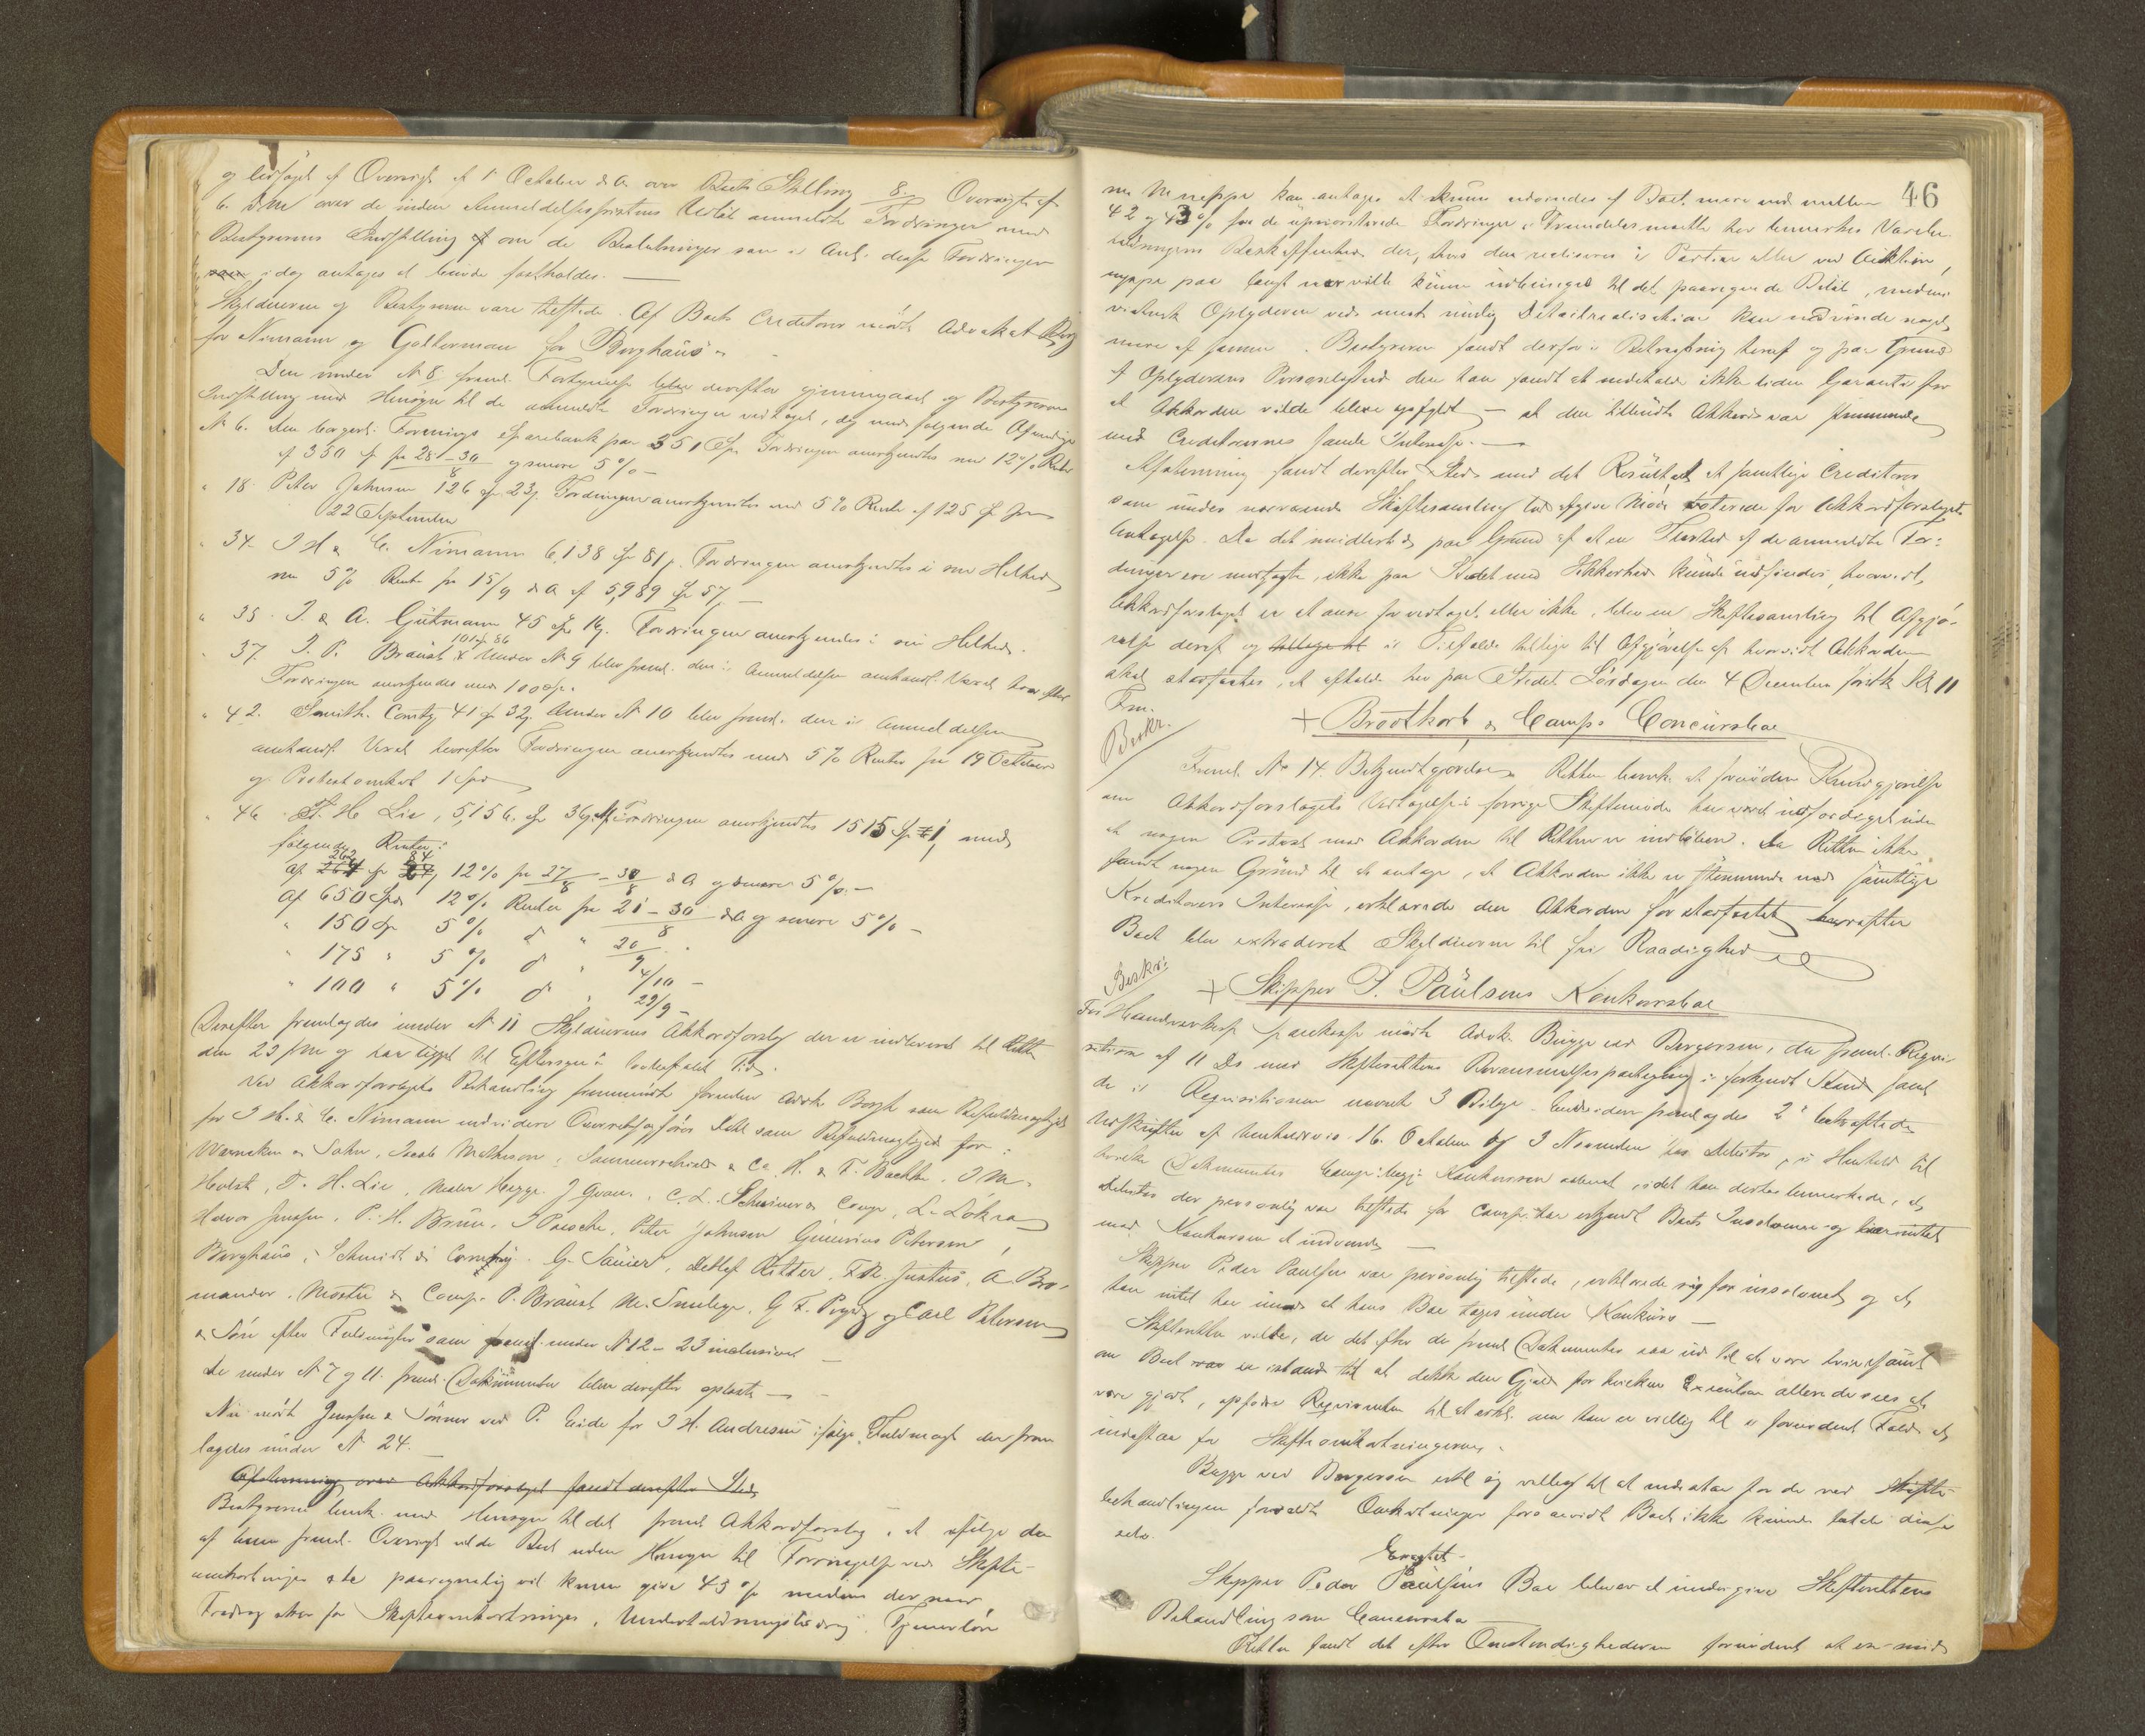 og ledsaget af Oversigt af 1 October d.A. over Boets Stilling 8. Oversigt af
6. dns over de inden Anmeldelsesfristens Udløb anmeldte Fordringer med
Bestyrerens Indstilling om de Beslutninger som i Anl. disse Fordringer
i dag antages at burde fastholdes. —
Skyldneren og Bestyreren vare tilstede. Af Boets Creditorer mødte Advokat Borg
for Nimann og Galterman for Berghaus
Den under N 8 freml. Fortegnelse blev derefter gjennemgaaet og Bestyrerens
Indstilling med Hensyn til de anmeldte Fordringer vedtaget, dog med følgende
N 6. Den borgerl. Forenings Sparebank paa 351 Spd Fordringen anerkjendtes med 12% Rente
af 350 Sp fra 28-30/8 og senere 5% —
" 18. Peter Johnsen 126 Sp 23 s. Fordringen anerkjendtes med 5% Rente af 125 Sp fra
22 September
" 34. I H & C. Nimann 6,138 Sp 81 s. Fordringen anerkjendtes i sin Helhed
med 5% Rente fra 15/9 d A af 5,989 Sp 57
" 35. I. & A. Gutmann 45 Sp 16 s. Fordringen anerkjendes i sin Helhed.
" 37. I. P. Braust 101 Sp 86 Under N 9 blev freml. den i Anmeldelsen omhandl. Vexel hvorefter
Fordringen anerkjendes med 100 Sp.
" 42. Smith. Comtz 41 Sp 32 s. Under N 10 blev freml. den i Anmeldelsen
omhandl. Vexel hvorefter Fordringen anerkjendtes med 5% Renter fra 19 October
og Protestomkost. 1 Spd
" 46 St. H Lie, 5,156 Sp 36 s. Fordringen anerkjendtes 1515 Sp 1, med
følgende Renter:
af 262 Sp 84, 12% fra 27/8 - 30/8 d A og senere 5%. —
Af 650 Spd 12% Renter fra 21 - 30/8 d A og senere 5% —
" 150 Sp 5% d " 20/9 .
" 175 " 5% d " 4/10 —
" 100 " 5% d " 29/9 —
Derefter fremlagdes under N 11 Skyldnerens Akkordforslag der er indleveret til Retten
den 23 f.M og har ligget til Eftersyn i lovbefalet Tid.
Ved Akkordforslagets Behandling fremmødte foruden Advk Borgh som Befuldmægtiget
for I H. & C. Nimann endvidere Overretssagfører Dahl som Befuldmægtiget for:
Warneken & Sohn, Jacob Mathieson, Sommerschield & Co, H. & F. Bachke, I M.
Holst, T. H. Lie, Meier Hegge. J Gran., C. L. Schreiner & Comp, L. Lökra
Halvor Jenssen, P. H. Bruun, I Paasche, Peter Johnsen Gunerius Petersen,
Berghaus, Schmidt & Comtz. G. Sauier, Detlef Ritter, F.R. Justus, A. Bro-
mander, Moster & Comp. P. Braust M. Smelege, G F. Pegetz og Carl Petersen
& Sön efter Fuldmagter som freml. under N 12 - 23 inclusive —
De under N 7 og 11. freml. Dokumenter blev derefter oplæste —
Nu mødt Jenssen & Sønner ved P. Eide for I H. Andresen ifølge Fuldmagt der frem-
lagdes under N 24.
Afstemning over Akkordforslaget fandt derefter Sted
Bestyreren bemk. med Hensyn til det freml Akkordforslag, at ifølge den
af ham freml. Oversigt vilde Boet uden Hensyn til Forringelse ved Skifte-
omkostninger &c paaregnelig vil kunne give 43% medens der naar
Fradrag sker for Skifteomkostninger, Underholdningsbidrag, Tjenerløn
46
m. M neppe kan antages at kunne udvindes af Boet mere end mellem
42 og 43% for de upriviligerede Fordringer. Fremdeles maatte her bemærkes Varebe-
holdningens Beskaffenhed der, hvis den realiseres i Partier eller ved Auktion,
neppe paa langt nær vilde kunne udbringes til det paaregnede Beløb, medens
Oplyderen ved mest mulig Detailrealisation kan udvinde noget
mere af samme. Bestyreren fandt derfor i Betragtning heraf og paa Grund
af Oplyderens Personlighed der han fandt at indeholde ikke liden Garanti for
at Akkorden vilde blive opfyldt — at den tilbudte Akkord var stemmende
med Creditorernes sande Interesse. —
Afstemning fandt derefter Sted med det Resultat at samtlige Creditorer
som under nærværende Skiftesamling lod afgive Møde voterede for Akkordforslagets
Antagelse. Da det imidlertid paa Grund af at en Flerhed af de anmeldte For-
dringer ere modsagte, ikke paa Stedet med Sikkerhed kunde udfindes, hvorvidt
Akkordforslaget er at anse for vedtaget eller ikke, blev en Skiftesamling til Afgjø-
relse deraf og i Tilfælde tillige til Afgjørelse af hvorvidt Akkorden
skal stadfæstes, at afholde her paa Stedet Lørdagen den 4 December førstk. Kl 11
Fm.
Beskr.
+ Brodtkorb & Camps Concursboe
Freml. N° 14. Bekjendtgjørelse. Retten bemk. at fornøden Kundgjørelse
om Akkordforslagets Vedtagelse i forrige Skiftemøde har været indfordiget uden
at nogen Protest mod Akkorden til Retten er indløben. Da Retten ikke
fandt nogen Grund til at antage, at Akkorden ikke er stemmende med samtlige
Kreditorers Interesse, erklærede den Akkorden for stadfæstet hvorefter
Boet blev extraderet Skyldneren til fri Raadighed
Beskr:
+ Skipper P. Paulsens Konkursboe
For Handverkerf. Spareksse mødte Advk. Bugge ved Bergersen, der freml. Reqvi-
sition af 11 Ds med Skifterettens Berammelsespaategning i forkyndt Stand samt
de i Reqvisitionen nævnte 3 Bilage. Endvidere fremlagdes 2de bekræftede
Udskrifter af Underretsv. 16. October og 3 November hos Debitor, i Henhold til
hvilke Dokumenter Comp: begj. Konkursen aabnet, idet han derhos bemærkede, at
Debitor der personlig var tilstede for Comp. har erkjendt Boets Insolvence og havde intet
mod Konkursen at indvende —
Skipper Peder Paulsen var personlig tilstede, erklærede sig for insolvent og at
han intet har imod at hans Boe tages under Konkurs —
Skifteretten vilde, da det efter de freml Dokumenter saa ud til at være tvivlsomt
om Boet var istand til at dække den Gjæld for hvilken Execution allerede sees at
være gjort, opfordre Reqvirenten til at erkl. om han er villig til i fornødent Fald at
indestaa for Skifteomkostningerne.
Bugge ved Bergersen erkl sig villig til at indestaa for de ved Skifte-
behandlingen forvoldte Omkostninger forsaavidt Boet ikke kunde betale disse
selv.
Eragtet
Skipper Peder Paulsens Boe bliver at undergive Skifterettens
Behandling som Concursboe
Retten fandt det efter Omstændighederne fornødent at en-mid